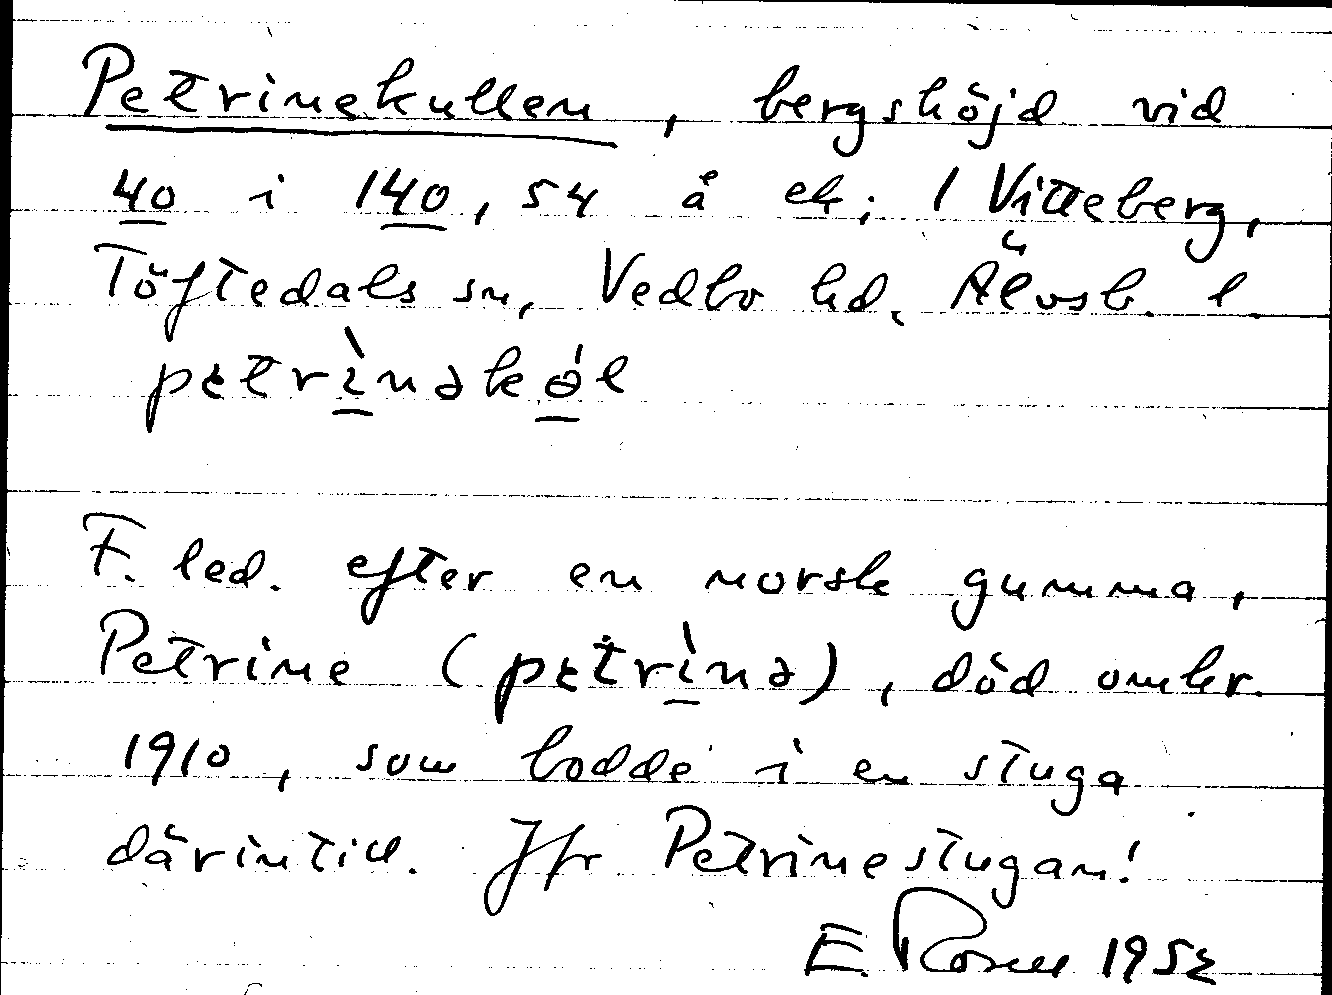 Petrinekullen, bergshöjd vid
40 i 140, 54 å ek; 1 Vitteberg,
Töftedals sn, Vedbo hd. Älvsb. l.
petrìnəkəl
F. led. efter en norsk gumma,
Petrine (petrìnə), död omkr.
1910, som bodde i en stuga
därintill. Jfr Petrinestugan!
E. Rosell 1952